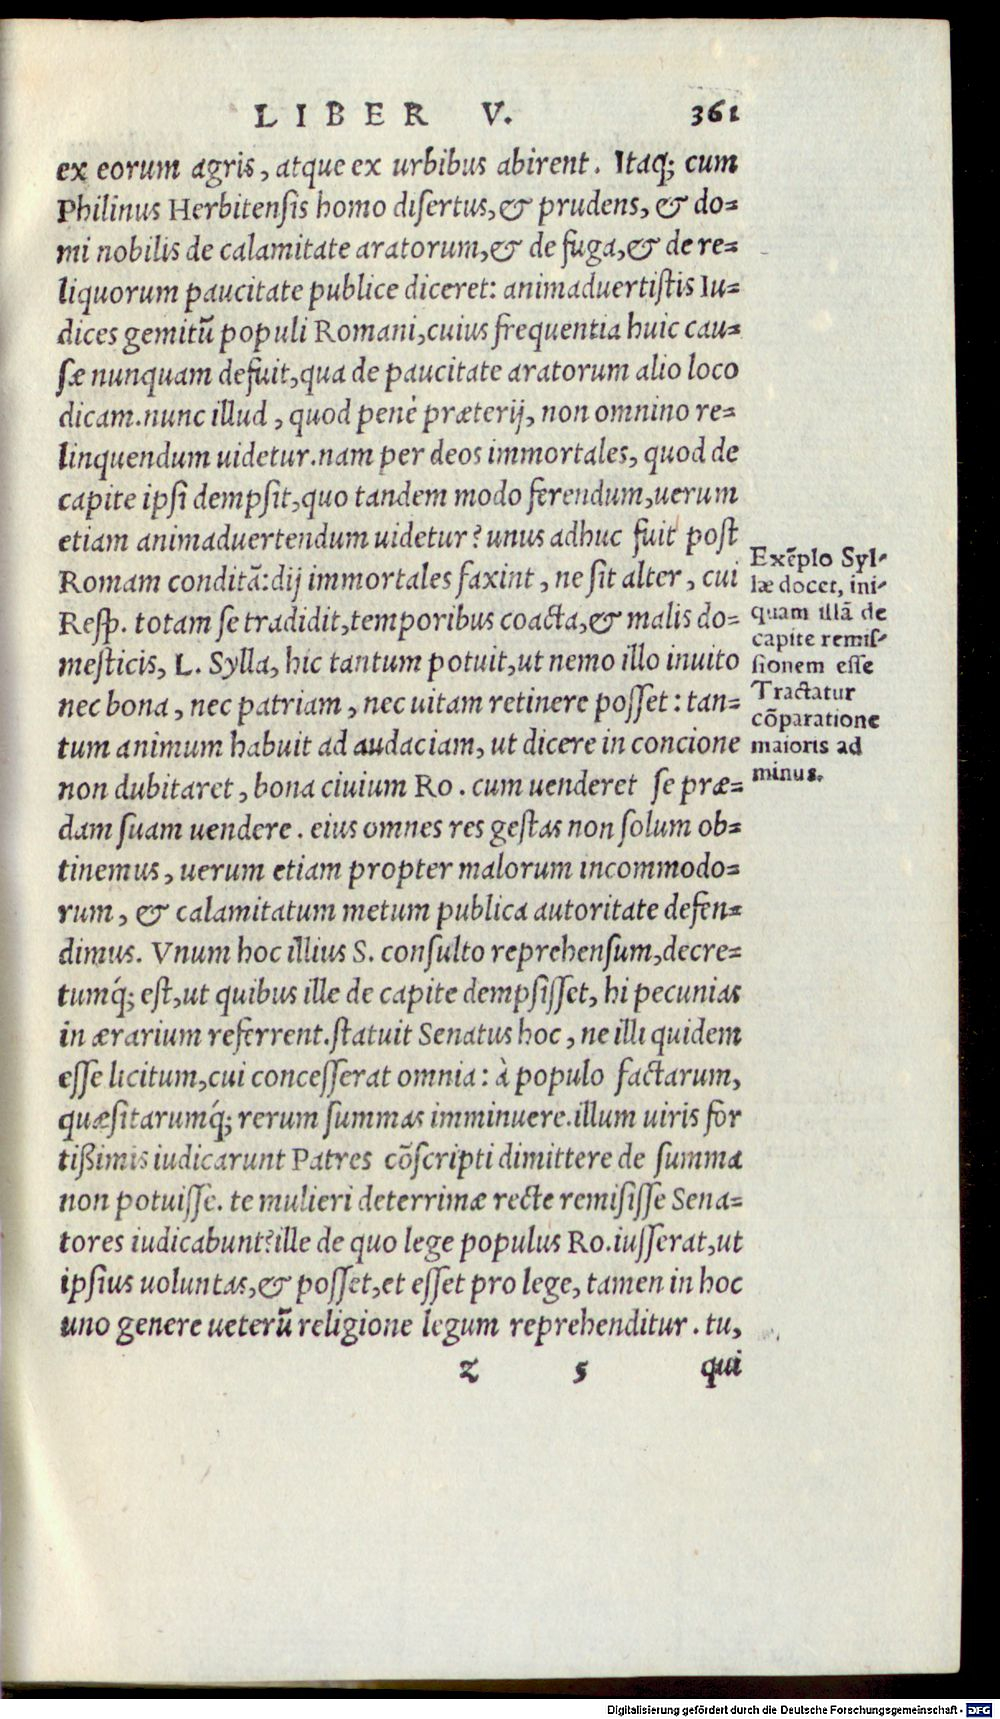 LIBER V. 361
ex eorum agris, atque ex urbibus abirent. Itaq; cum
Philinus Herbitensis homo disertus, & prudens, & do=
mi nobilis de calamitate aratorum, & de fuga, & de re=
liquorum paucitate publice diceret: animaduertistis Iu=
dices gemitū populi Romani, cuius frequentia huic cau=
sæ nunquam defuit, qua de paucitate aratorum alio loco
dicam. nunc illud, quod penè præterij, non omnino re=
linquendum uidetur. nam per deos immortales, quod de
capite ipsi dempsit, quo tandem modo ferendum, uerum
etiam animaduertendum uidetur? unus adhuc fuit post
Romam conditā: dij immortales faxint, ne sit alter, cui
Resp. totam se tradidit, temporibus coacta, & malis do=
mesticis, L. Sylla, hic tantum potuit, ut nemo illo inuito
nec bona, nec patriam, nec uitam retinere posset: tan=
tum animum habuit ad audaciam, ut dicere in concione
non dubitaret, bona ciuium Ro. cum uenderet se præ=
dam suam uendere. eius omnes res gestas non solum ob=
tinemus, uerum etiam propter malorum incommodo=
rum, & calamitatum metum publica autoritate defen=
dimus. Vnum hoc illius S. consulto reprehensum, decre=
tumq́; est, ut quibus ille de capite dempsisset, hi pecunias
in ærarium referrent. statuit Senatus hoc, ne illi quidem
esse licitum, cui concesserat omnia: à populo factarum,
quæsitarumq́; rerum summas imminuere. illum uiris for
tißimis iudicarunt Patres cōscripti dimittere de summa
non potuisse. te mulieri deterrimæ recte remisisse Sena=
tores iudicabunt? ille de quo lege populus Ro. iusserat, ut
ipsius uoluntas, & posset, et esset pro lege, tamen in hoc
uno genere ueterū religione legum reprehenditur. tu,
Z 5 qui
Exēplo Syl-
læ docet, ini-
quam illā de
capite remis-
sionem esse
Tractatur
cōparatione
maioris ad
minus.
Digitalisierung gefördert durch die Deutsche Forschungsgemeinschaft - DFG